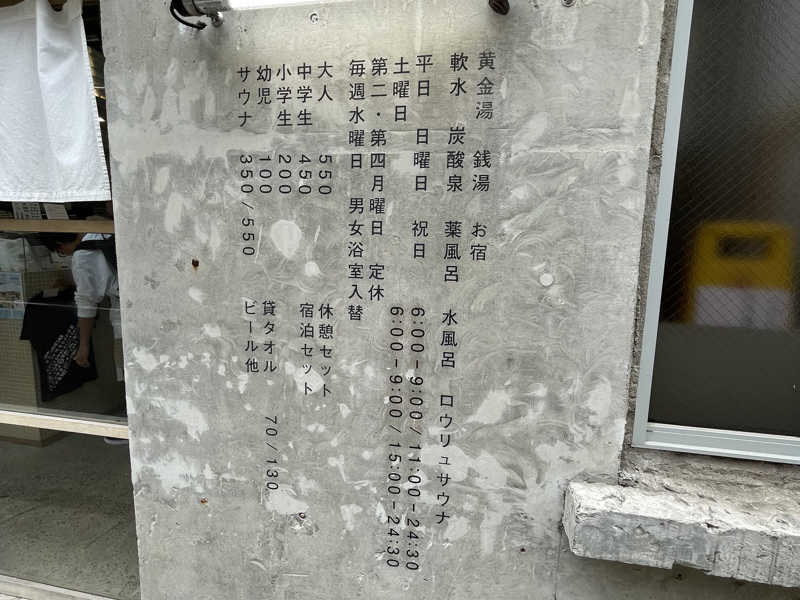 黄金湯 銭湯 お宿
軟水 炭酸泉 薬風呂 水風呂 ロウリュサウナ
平日 日曜日 祝日 6:00-9:00/11:00-24:30
土曜日 6:00-9:00/15:00-24:30
第二・第四月曜日 定休
毎週水曜日 男女浴室入替
大人 550 休憩セット
中学生 450 宿泊セット
小学生 200
幼児 100 貸タオル 70/130
サウナ 350/550 ビール他